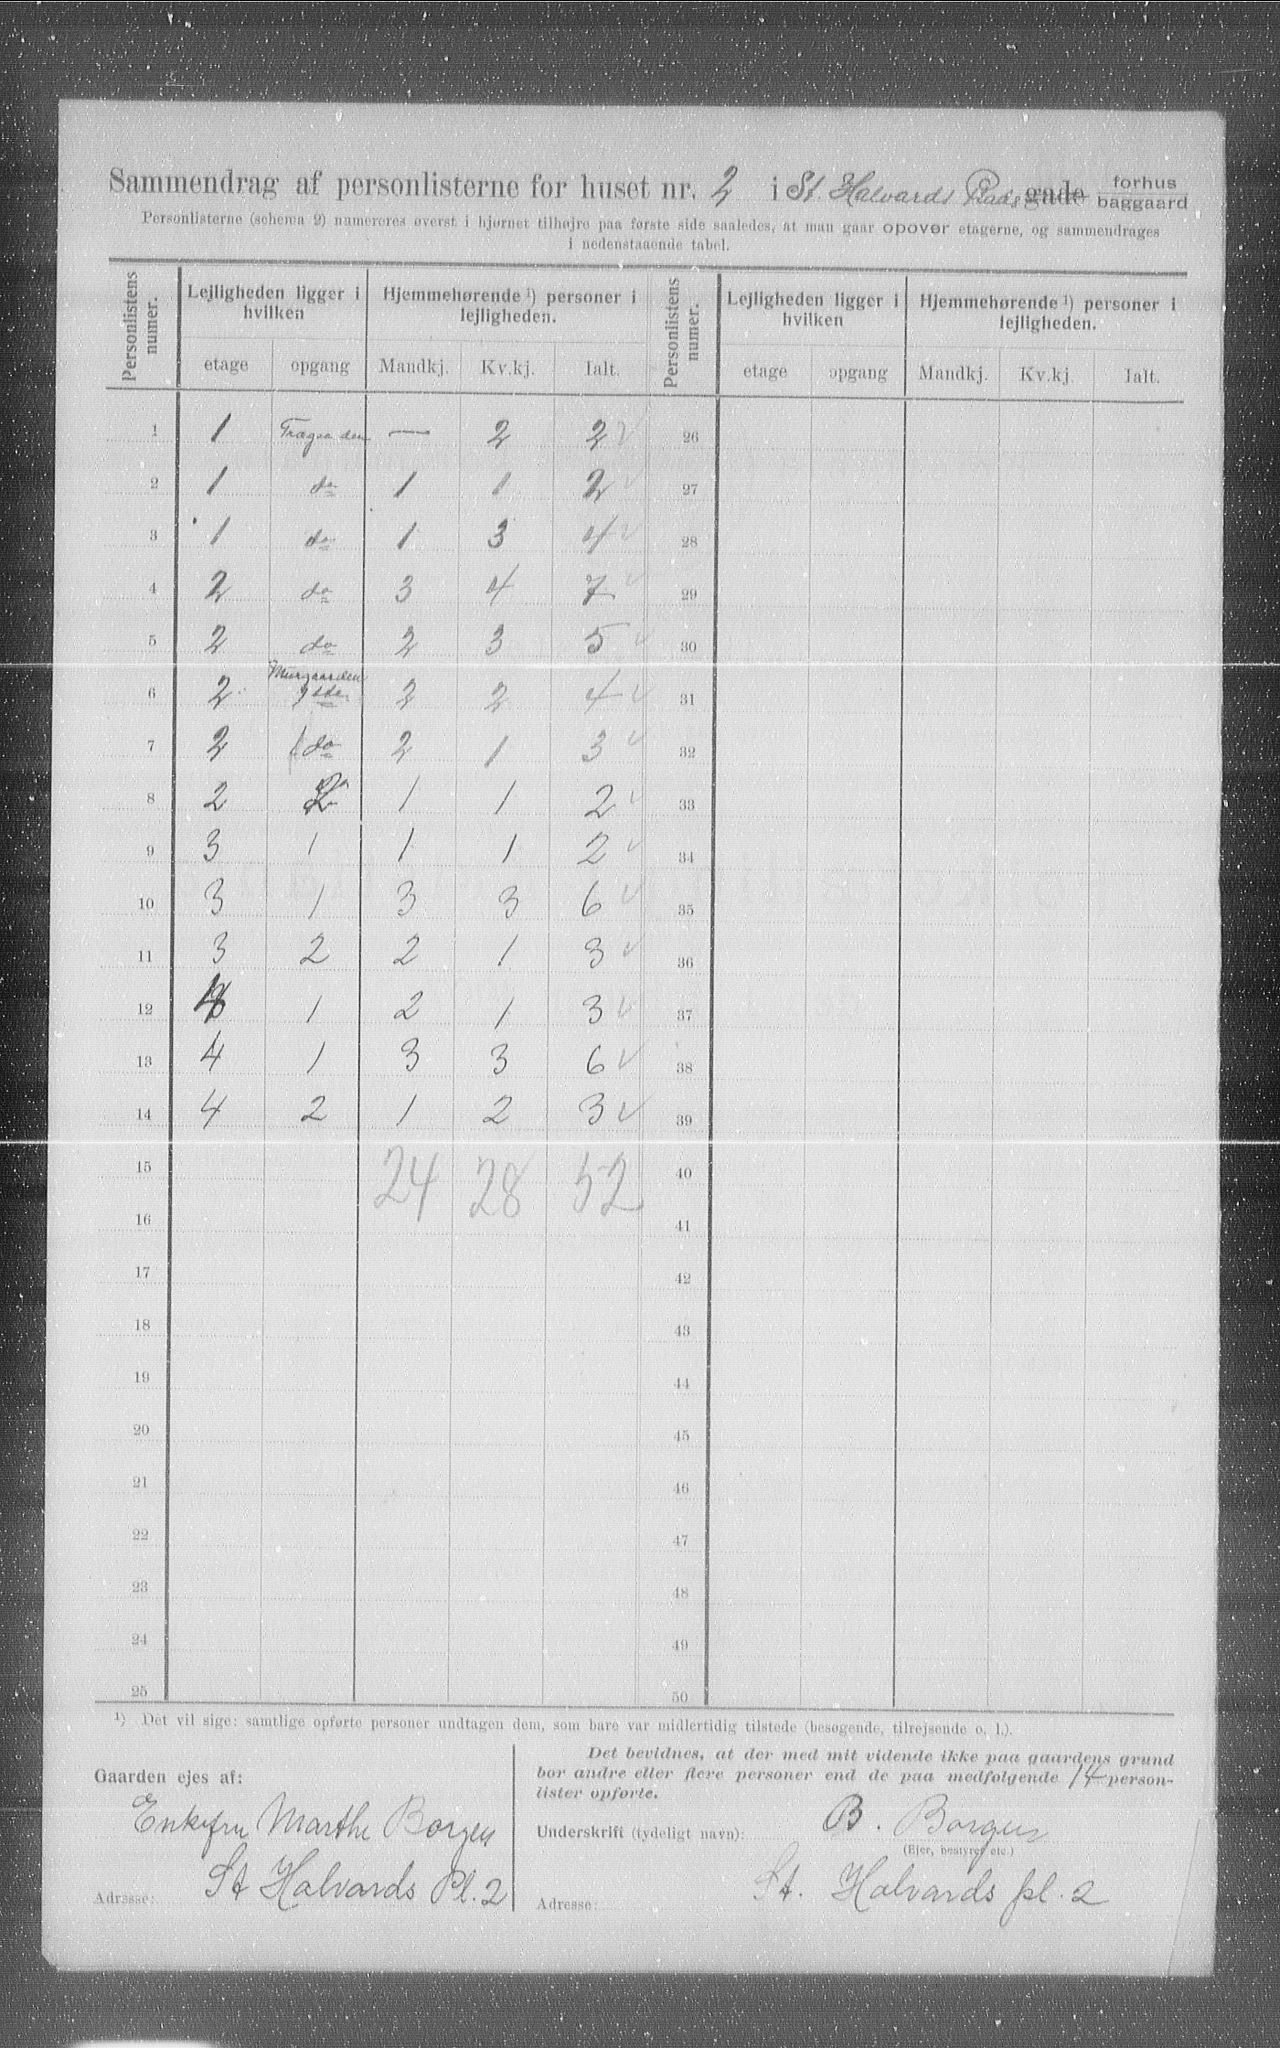 Sammendrag af personlisterne for huset nr. 2 i St. Halvards Plads gade forhus baggaard
Personlisterne (schema 2) numereres øverst i hjørnet tilhøjre paa første side saaledes, at man gaar opover etagerne, og sammendrages
i nedenstaaende tabel.
Personlistens numer. Lejligheden ligger i hvilken Hjemmehørende ¹) personer i lejligheden. Personlistens numer. Lejligheden ligger i hvilken Hjemmehørende ¹) personer i lejligheden.
etage opgang Mandkj. Kv.kj. Ialt. etage opgang Mandkj. Kv.kj. Ialt.
1 1 — 2 2 26
2 1 do 1 1 2 27
3 1 do 1 3 4 28
4 2 do 3 4 7 29
5 2 do 2 3 5 30
6 2 Murgaarden 2 2 4 31
7 2 do 2 1 3 32
8 2 2 1 1 2 33
9 3 1 1 1 2 34
10 3 1 3 3 6 35
11 3 2 2 1 3 36
12 4 1 2 1 3 37
13 4 1 3 3 6 38
14 4 2 1 2 3 39
15 24 28 52 40
16 41
17 42
18 43
19 44
20 45
21 46
22 47
23 48
24 49
25 50
¹) Det vil sige: samtlige opførte personer undtagen dem, som bare var midlertidig tilstede (besøgende, tilrejsende o. l.).
Gaarden ejes af:
Enkefru Marthe Borgen
Adresse: St Halvards Pl. 2
Det bevidnes, at der med mit vidende ikke paa gaardens grund
bor andre eller flere personer end de paa medfølgende 14 person-
lister opførte.
Underskrift (tydeligt navn): B. Borgen
(Ejer, bestyrer etc.)
Adresse: St. Halvards pl. 2